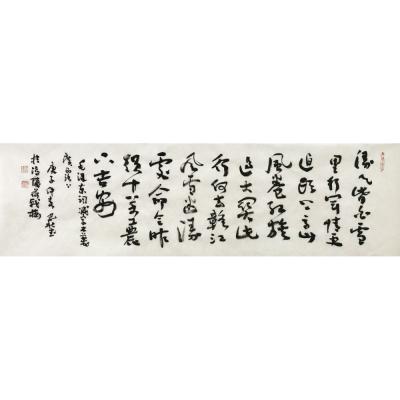 漫天皆白雪
里行军情更
迫頭上高山
風卷红旗
过大関此
行何去赣江
風雪迷漫
處命令昨
颁十万工農
下吉安
毛泽东词减字木兰花
廣昌路上
庚子仲春
於洛陽